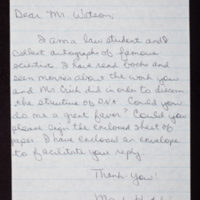 Dear Mr. Watson,
I am a law student and I
collect autograph of famous
scientist. I have read books and
seen movies about the work you
and Mr. Crick did in order to discover
the structure of DNA. Could you
do me a great favor? Could you
please sign the enclosed sheet of
paper. I have enclosed an envelope
to facilitate your reply.
Thank you!